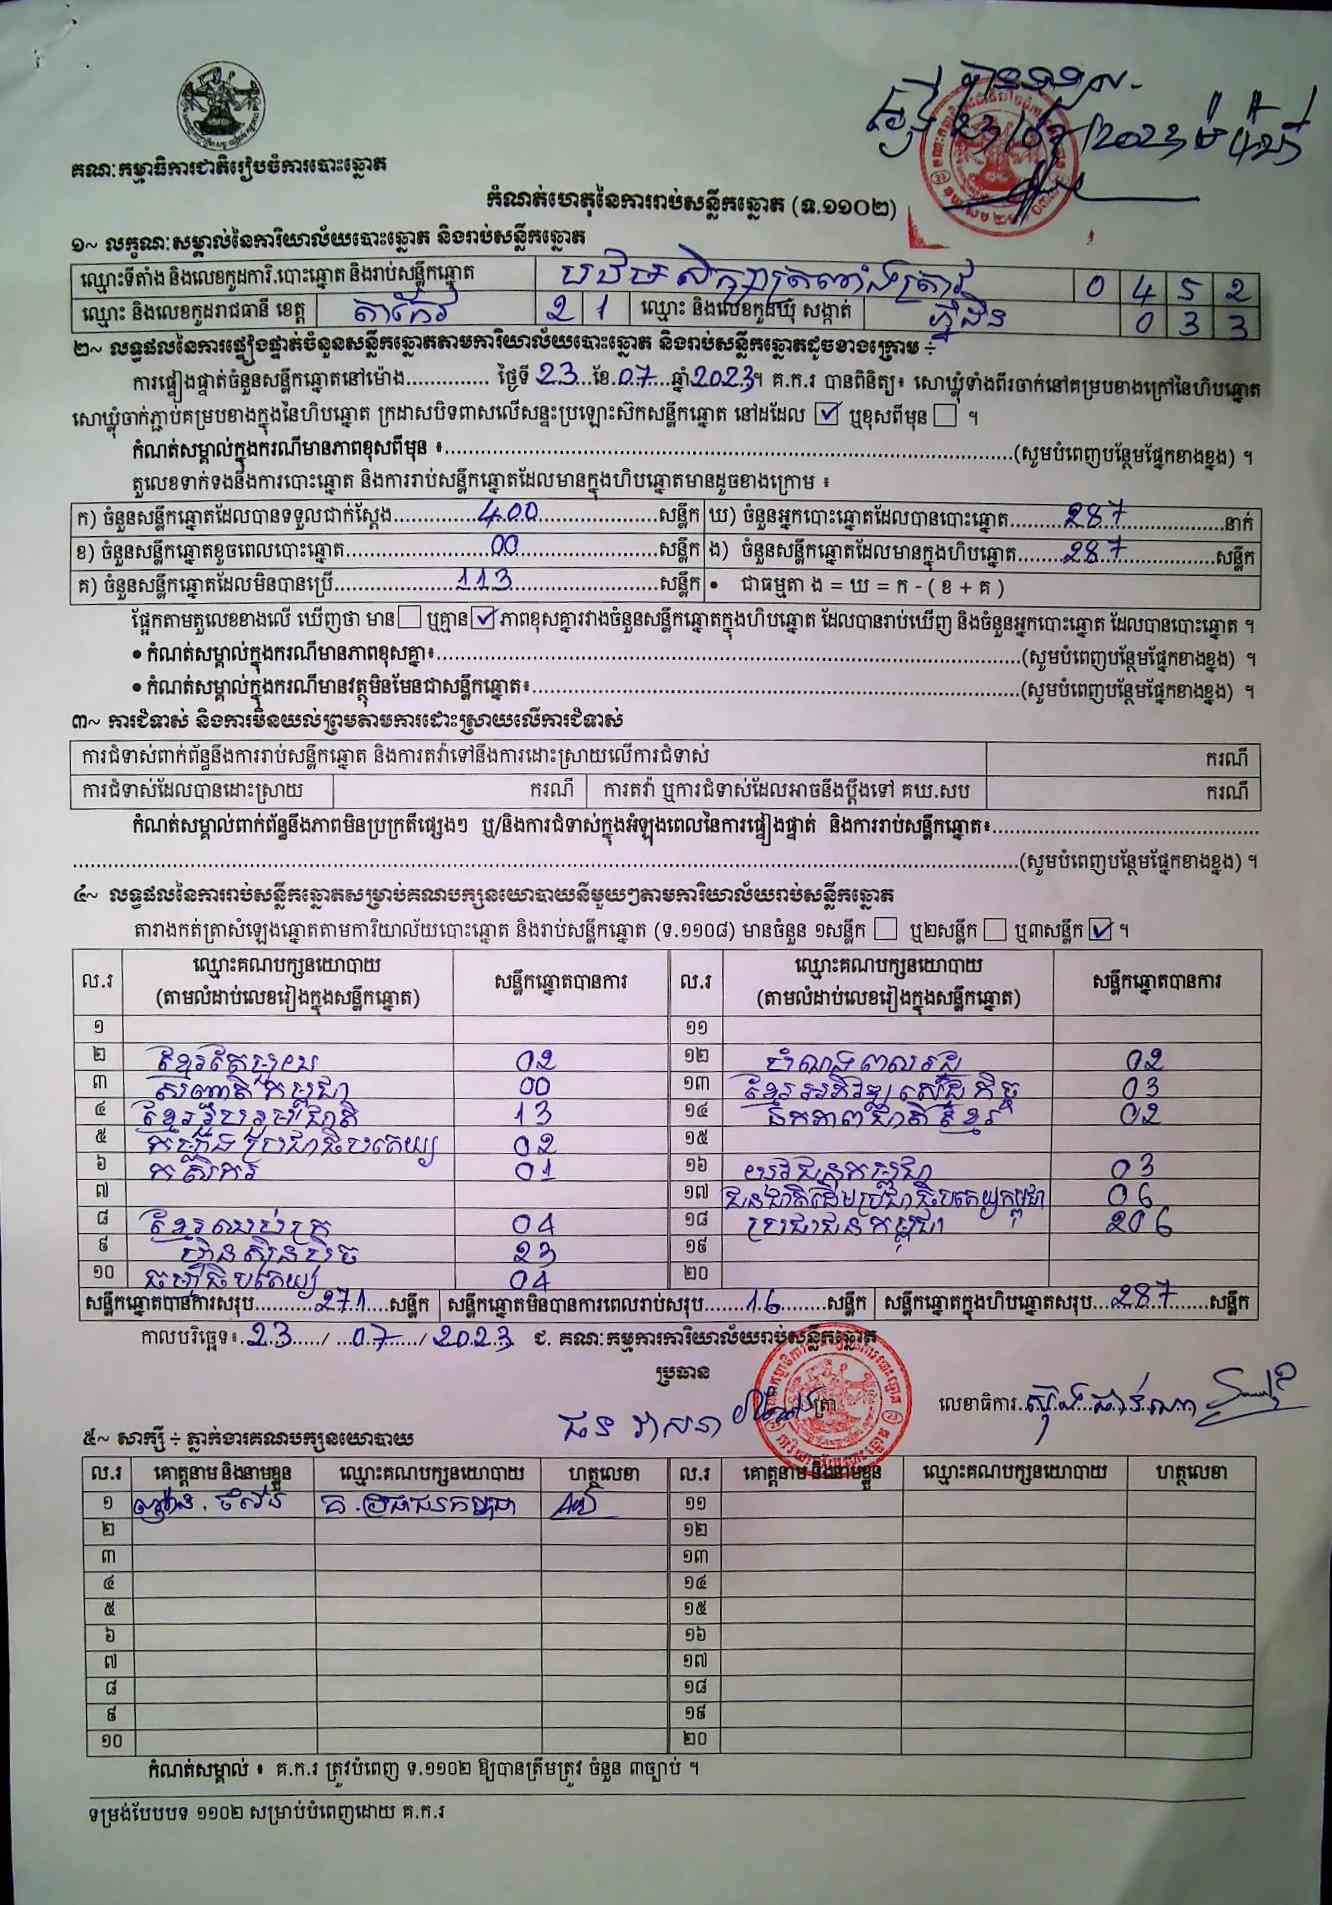 គណៈកម្មាធិការជាតិរៀបចំការបោះឆ្នោត
កំណត់ហេតុនៃការរាប់សន្លឹកឆ្នោត (ទ.១១០២)
១~ លក្ខណៈសម្គាល់នៃការិយាល័យបោះឆ្នោត និងរាប់សន្លឹកឆ្នោត
ឈ្មោះទីតាំង និងលេខកូដការិ.បោះឆ្នោត និងរាប់សន្លឹកឆ្នោត បឋមសិក្សាត្រពាំងត្រាវ 0 4 5 2
ឈ្មោះ និងលេខកូដរាជធានី ខេត្ត តាកែវ 2 1 ឈ្មោះ និងលេខកូដឃុំ សង្កាត់ ភ្នំដិន 0 3 3
២~ លទ្ធផលនៃការផ្ទៀងផ្ទាត់ចំនួនសន្លឹកឆ្នោតតាមការិយាល័យបោះឆ្នោត និងរាប់សន្លឹកឆ្នោតដូចខាងក្រោម ÷
ការផ្ទៀងផ្ទាត់ចំនួនសន្លឹកឆ្នោតនៅម៉ោង.............. ថ្ងៃទី 23 ខែ 07 ឆ្នាំ 2023។ គ.ក.រ បានពិនិត្យ៖ សោឃ្លុំទាំងពីរចាក់នៅគម្របខាងក្រៅនៃហិបឆ្នោត
សោឃ្លុំចាក់ភ្ជាប់គម្របខាងក្នុងនៃហិបឆ្នោត ក្រដាសបិទពាសលើសន្ទះប្រឡោះស៊កសន្លឹកឆ្នោត នៅដដែល ☑ ឬខុសពីមុន ☐ ។
កំណត់សម្គាល់ក្នុងករណីមានភាពខុសពីមុន ៖..........(សូមបំពេញបន្ថែមផ្នែកខាងខ្នង) ។
តួលេខទាក់ទងនឹងការបោះឆ្នោត និងការរាប់សន្លឹកឆ្នោតដែលមានក្នុងហិបឆ្នោតមានដូចខាងក្រោម ៖
ក) ចំនួនសន្លឹកឆ្នោតដែលបានទទួលជាក់ស្តែង 400 សន្លឹក ឃ) ចំនួនអ្នកបោះឆ្នោតដែលបានបោះឆ្នោត 287 នាក់
ខ) ចំនួនសន្លឹកឆ្នោតខូចពេលបោះឆ្នោត 00 សន្លឹក ង) ចំនួនសន្លឹកឆ្នោតដែលមានក្នុងហិបឆ្នោត 287 សន្លឹក
គ) ចំនួនសន្លឹកឆ្នោតដែលមិនបានប្រើ 113 សន្លឹក • ជាធម្មតា ង = ឃ = ក - ( ខ + គ )
ផ្អែកតាមតួលេខខាងលើ ឃើញថា មាន ☐ ឬគ្មាន ☑ ភាពខុសគ្នារវាងចំនួនសន្លឹកឆ្នោតក្នុងហិបឆ្នោត ដែលបានរាប់ឃើញ និងចំនួនអ្នកបោះឆ្នោត ដែលបានបោះឆ្នោត ។
• កំណត់សម្គាល់ក្នុងករណីមានភាពខុសគ្នា៖..........(សូមបំពេញបន្ថែមផ្នែកខាងខ្នង) ។
• កំណត់សម្គាល់ក្នុងករណីមានវត្ថុមិនមែនជាសន្លឹកឆ្នោត៖..........(សូមបំពេញបន្ថែមផ្នែកខាងខ្នង) ។
៣~ ការជំទាស់ និងការមិនយល់ព្រមតាមការដោះស្រាយលើការជំទាស់
ការជំទាស់ពាក់ព័ន្ធនឹងការរាប់សន្លឹកឆ្នោត និងការតវ៉ាទៅនឹងការដោះស្រាយលើការជំទាស់ ករណី
ការជំទាស់ដែលបានដោះស្រាយ ករណី ការតវ៉ា ឬការជំទាស់ដែលអាចនឹងប្តឹងទៅ គឃ.សប ករណី
កំណត់សម្គាល់ពាក់ព័ន្ធនឹងភាពមិនប្រក្រតីផ្សេងៗ ឬ/និងការជំទាស់ក្នុងអំឡុងពេលនៃការផ្ទៀងផ្ទាត់ និងការរាប់សន្លឹកឆ្នោត៖..........
..........(សូមបំពេញបន្ថែមផ្នែកខាងខ្នង) ។
៤~ លទ្ធផលនៃការរាប់សន្លឹកឆ្នោតសម្រាប់គណបក្សនយោបាយនីមួយៗតាមការិយាល័យរាប់សន្លឹកឆ្នោត
តារាងកត់ត្រាសំឡេងឆ្នោតតាមការិយាល័យបោះឆ្នោត និងរាប់សន្លឹកឆ្នោត (ទ.១១០៨) មានចំនួន ១សន្លឹក ☐ ឬ២សន្លឹក ☐ ឬ៣សន្លឹក ☑ ។
ល.រ ឈ្មោះគណបក្សនយោបាយ (តាមលំដាប់លេខរៀងក្នុងសន្លឹកឆ្នោត) សន្លឹកឆ្នោតបានការ ល.រ ឈ្មោះគណបក្សនយោបាយ (តាមលំដាប់លេខរៀងក្នុងសន្លឹកឆ្នោត) សន្លឹកឆ្នោតបានការ
១ ១១
២ ខ្មែរតែមួយ 02 ១២ បំណងពលរដ្ឋ 02
៣ សញ្ជាតិកម្ពុជា 00 ១៣ ខ្មែរអភិវឌ្ឍសេដ្ឋកិច្ច 03
៤ ខ្មែររួបរួមជាតិ 13 ១៤ ឯកភាពជាតិខ្មែរ 02
៥ កម្លាំងប្រជាធិបតេយ្យ 02 ១៥
៦ កសិករ 01 ១៦ យុវជនកម្ពុជា 03
៧ ១៧ ជនជាតិដើមប្រជាធិបតេយ្យកម្ពុជា 06
៨ ខ្មែរឈប់ក្រ 04 ១៨ ប្រជាជនកម្ពុជា 206
៩ ហ៊្វុនស៊ិនប៉ិច 23 ១៩
១០ ធម្មាធិបតេយ្យ 04 ២០
សន្លឹកឆ្នោតបានការសរុប 271 សន្លឹក សន្លឹកឆ្នោតមិនបានការពេលរាប់សរុប 16 សន្លឹក សន្លឹកឆ្នោតក្នុងហិបឆ្នោតសរុប 287 សន្លឹក
កាលបរិច្ឆេទ៖ 23 / 07 / 2023 ជ. គណៈកម្មការការិយាល័យរាប់សន្លឹកឆ្នោត
ប្រធាន
ផន វាសនា ត្រា លេខាធិការ
៥~ សាក្សី ÷ ភ្នាក់ងារគណបក្សនយោបាយ
ល.រ គោត្តនាម និងនាមខ្លួន ឈ្មោះគណបក្សនយោបាយ ហត្ថលេខា ល.រ គោត្តនាម និងនាមខ្លួន ឈ្មោះគណបក្សនយោបាយ ហត្ថលេខា
១ គ.ប្រជាជនកម្ពុជា ១១
២ ១២
៣ ១៣
៤ ១៤
៥ ១៥
៦ ១៦
៧ ១៧
៨ ១៨
៩ ១៩
១០ ២០
កំណត់សម្គាល់ ៖ គ.ក.រ ត្រូវបំពេញ ទ.១១០២ ឱ្យបានត្រឹមត្រូវ ចំនួន ៣ច្បាប់ ។
ទម្រង់បែបបទ ១១០២ សម្រាប់បំពេញដោយ គ.ក.រ